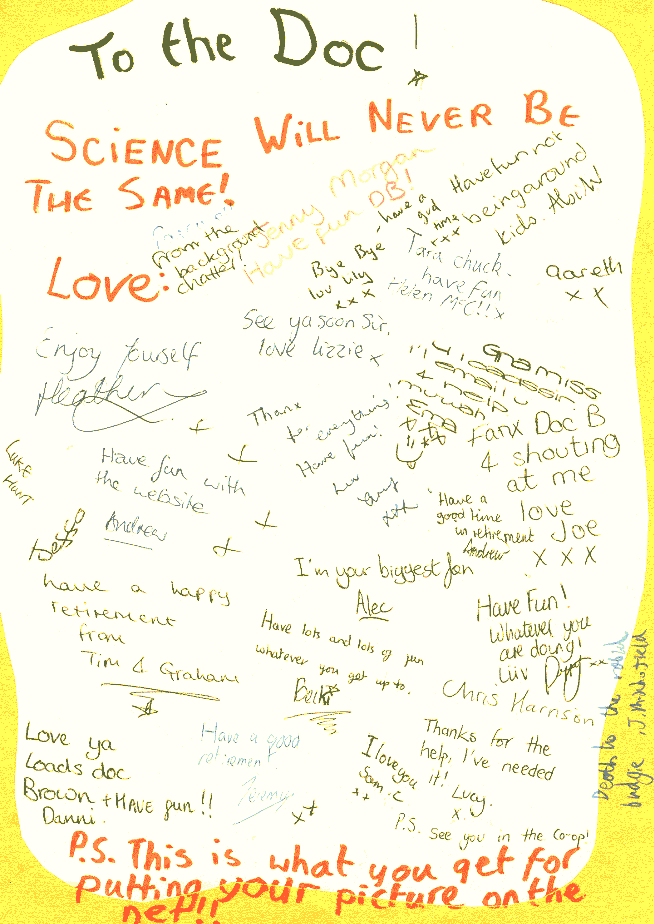 To the Doc!
SCIENCE WILL NEVER BE
THE SAME!
Love:
From the
background
chatter
Jenny Morgan
Have fun DB!
Bye Bye
luv
xxx
have a
gud
time
xxx
Have fun not
being around
kids. Alsi.W
Tara chuck.
have fun
Helen MC!!x
Gareth
x x
See ya soon Sir,
love lizzie x
Enjoy Yourself
Heather
Thanx
for everything!
Have fun!
Luv
Fanx Doc B
4 shouting
at me
love
Joe
x x x
Luke
Hart
Have fun with
the website
Andrew
Have a
good time
in retirement
Andrew
I'm your biggest fan
Alec
have a happy
retirement
from
Tim & Graham
Have lots and lots of fun
whatever you get up to.
Becki
Have Fun!
Whatever you
are doing!
Luv
Chris Harrison
Death to the
budgie
Love ya
Loads doc
Brown + HAVE fun!!
Danni.
Have a good
retirement!
Jeremy
I love you
Sam.C
x x
Thanks for the
help, I've needed
it! Lucy.
x
P.S. See you in the Co-op!
P.S. This is what you get for
putting your picture on the
net!!